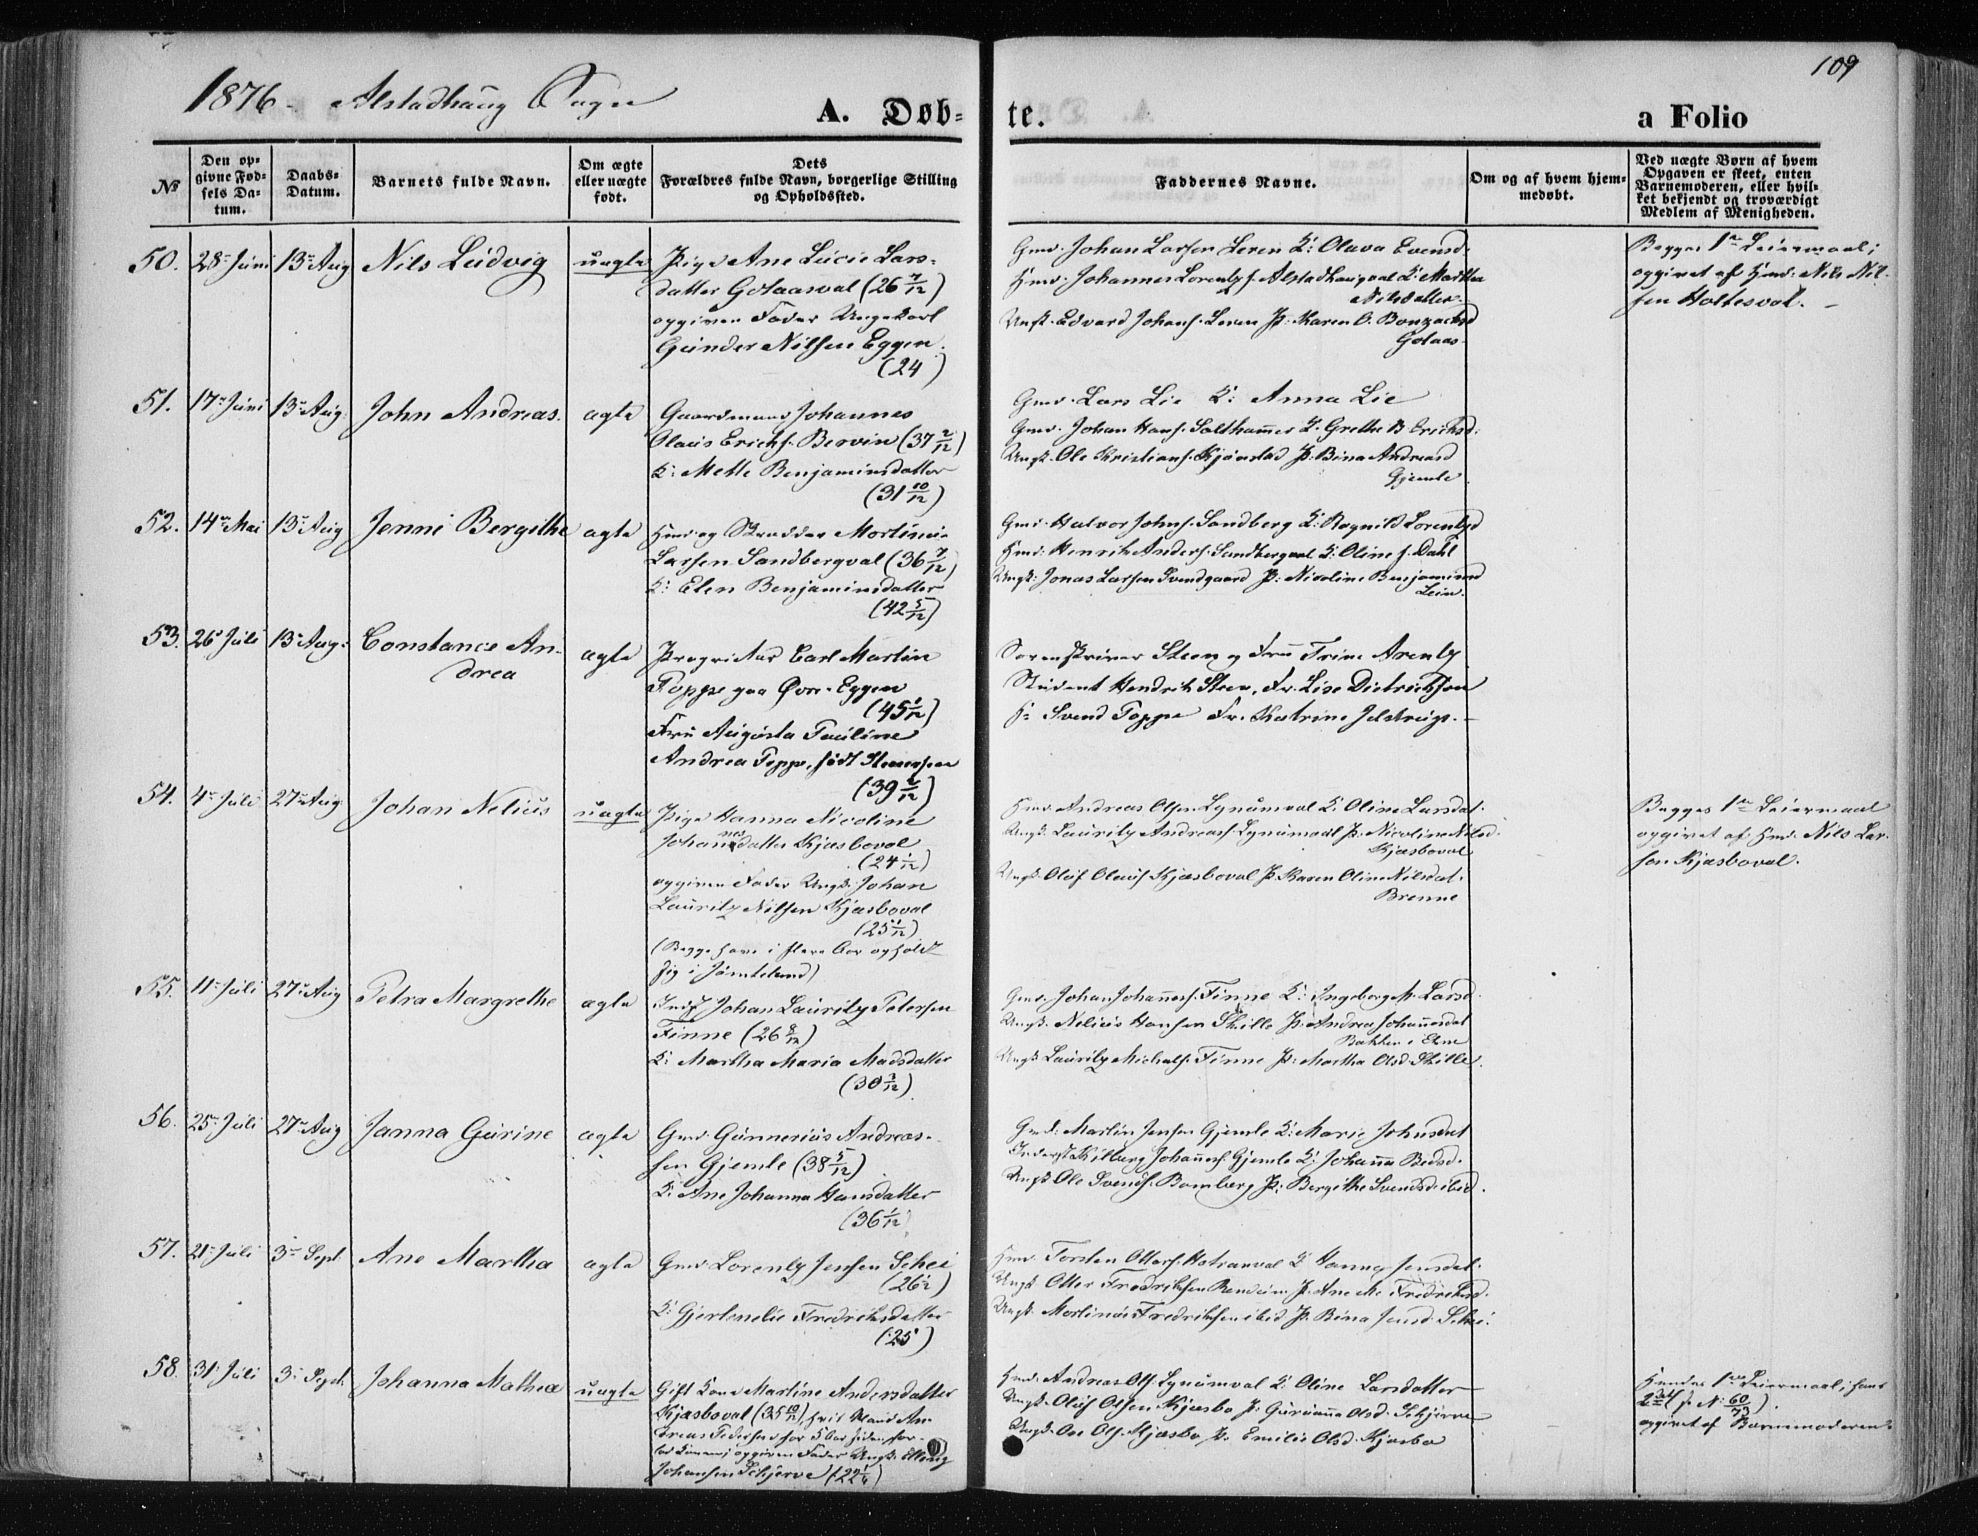 109
1876 Alstadhaug Sogn
A. Døb=
te.
a Folio
№
Den op=
givne Fød=
sels Da=
tum.
Daabs=
Datum.
Barnets fulde Navn.
Om ægte
eller uægte
født.
Dets
Forældres fulde Navn, borgerlige Stilling
og Opholdssted.
Faddernes Navne.
Om og af hvem hjem=
medøbt.
Ved uægte Børn af hvem
Opgaven er skeet, enten
Barnemoderen, eller hvil=
ket bekjendt og troværdigt
Medlem af Menigheden.
50. 28 Juni 13 Aug Nils Ludvig uægte
Pige Ane Lucie Lars=
datter Golaasval (26 7/12)
opgiven Fader Ungekarl
Gunder Nilsen Eggen.
(24)
Gmd. Johan Larsen Leren K: Olava Evensd.
Hmd. Johannes Lorentsf. Alstadhaugval K: Martha
Nilsdatter
Ungk. Edvard Johans. Leren P: Karen O. Bonsachsd
Golaas
Begges 1ste Leiermaal;
opgivet af Hmd. Nils Nil=
sen Holtesval.
51. 17 Juni 13 Aug. John Andreas. ægte
Gaardmand Johannes
Olaus Erichs. Bervin (37 2/12)
K: Mette Benjaminsdatter
(31 10/12)
Gmd. Lars Lie K: Anna Lie
Gmd. Johan Hans. Salthammer P. Grethe B Erichsd.
Ungk. Ole Kristians. Kjønstad P. Bina Andreasd
Gjemle
52. 14 Mai 13 Aug Jenni Bergithe ægte
Hmd og Skrædder Mortinus
Larsen Sandbergval (36 7/12)
K: Elen Benjaminsdatter
(42 5/12)
Gmd. Halvor Johns. Sandberg K: Ragnild Lorentsd
Hmd: Henrik Anders. Sandbergval K: Oline J. Dahl
Ungk: Jonas Larsen Svendgaard P: Nicoline Benjaminsd
Lein.
53. 26 Juli 13 Aug: Constance An=
drea
ægte
Proprietær Carl Martin
Poppe paa Øvre Eggen
(45 1/12)
Fru Augusta Pauline
Andrea Poppe, født
(39 2/12)
Sorenskriver Steen og Fru Trine Arentz
Student Hendrik Steen, Fr. Lise Dietrichson
Hr Svend Poppe Fr. Katrine Jelstrup.
54. 4 Juli 27 Aug. Johan Nelius uægte
Pige Hanna Nicoline
Johannesdatter Kjæsboval
(24 1/12)
opgiven Fader Ungk: Johan
Lauritz Nilsen Kjæsboval
(25 1/12)
(Begge have i flere Aar opholdt
sig i Jämtland)
Hmd. Andreas Olsen Lynumval K: Oline Larsdat.
Ungk. Lauritz Andreass. Lynumval P: Nicoline Nilsd.
Kjæsboval
Ungk. Oluf Olaus. Kjæsboval P. Karen Oline Nilsdat.
Brenne
Begges 1ste Leiermaal
opgivet af Hmd. Nils Lar=
sen Kjæsboval.
55. 11 Juli 27 Aug Petra Margrethe ægte
Indst Johan Lauritz Petersen
Finne (26 8/12)
K: Martha Maria Madsdatter
(30 3/12)
Gmd. Johan Johanness. Finne K: Ingeborg M. Larsd.
Ungk. Nelius Hansen Skille P. Andrea Johannesdat
Bakken i Ekne
Ungk Lauritz Michals. Finne P: Martha Olsd Skille.
56. 25 Juli 27 Aug Janna Gurine ægte
Gmd. Gunnerius Andreas=
sen Gjemle (38 5/12)
K. Ane Johanna Hansdatter
(36 1/12)
Gmd: Martin Jensen Gjemle K: Marie Johnsdat
Johannes. Gjemle K: Johanna
Ungk Ole Svends. Bomberg P: Bergithe Svendsd. ibid.
57. 21 Juli 3 Sept Ane Martha ægte
Gmd. Lorentz Jensen Schei
(26 1/2)
K: Fredriksdatter
(25)
Hmd. Torsten Otters. K Jensdat.
Ungk Otter Fredriksen P. Ane M. Fredriksd.
Ungk. Mortinus Fredriksen ibid P. Bina Jensd. Schei.
58. 31 Juli 3 Sept. Johanna Mathea uægte
Gift Kone Martine Andersdatter
Kjæsboval (35 10/12), hvis Mand An=
dreas Pedersen for 5 Aar siden for=
lod hende; opgiven Fader Ungk. Elling
Johansen Schjerve (22 1/4)
Hmd. Andreas Ols. Lynumval K: Oline Larsdatter
Ungk. Oluf Olsen Kjæsbo P: Olsd. Schjerve
Ungk. Ole Ols. Kjæsbo P. Emilie Olsd. Kjæsbo
Hendes 1ste Leiermaal; hans
2det (s. N. 60/73).
opgivet af Barnemoderen